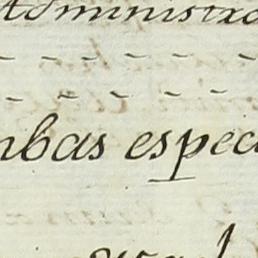 Administra
mbas espec